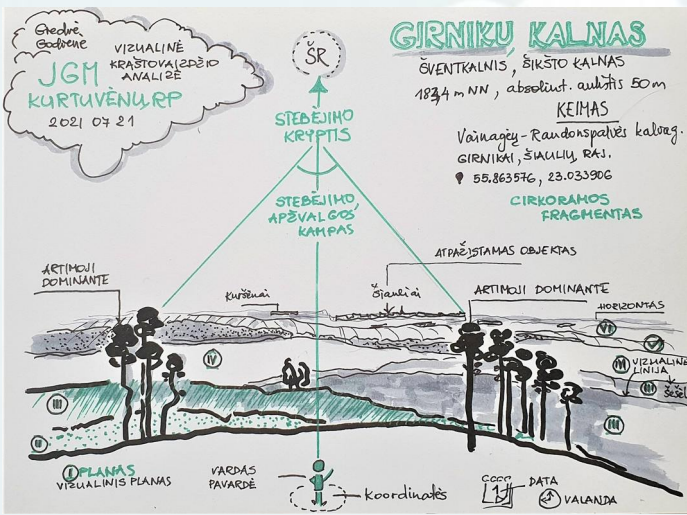 Giedrė
Godienė
VIZUALINĖ
KRAŠTOVAIZDŽIO
ANALIZĖ
JGM
KURTUVĖNŲ RP
2021 07 21
ŠR
STEBĖJIMO
KRYPTIS
STEBĖJIMO,
APŽVALGOS
KAMPAS
GIRNIKŲ KALNAS
ŠVENTKALNIS, ŠIKŠTO KALNAS
183,4 m NN, absoliut. aukštis 50 m
KEIMAS
GIRNIKAI, ŠIAULIŲ RAJ.
55.863576, 23.033906
CIRKORAMOS
FRAGMENTAS
ATPAŽĮSTAMAS OBJEKTAS
ARTIMOJI
DOMINANTE
Kuršėnai
Šiauliai
ARTIMOJI DOMINANTE
HORIZONTAS
VI
V
IV
IV
VIZUALINĖ
LINIJA
III
III
III
II
I PLANAS
VIZUALINIS PLANAS
VARDAS
PAVARDĖ
koordinatės
1
DATA
VALANDA